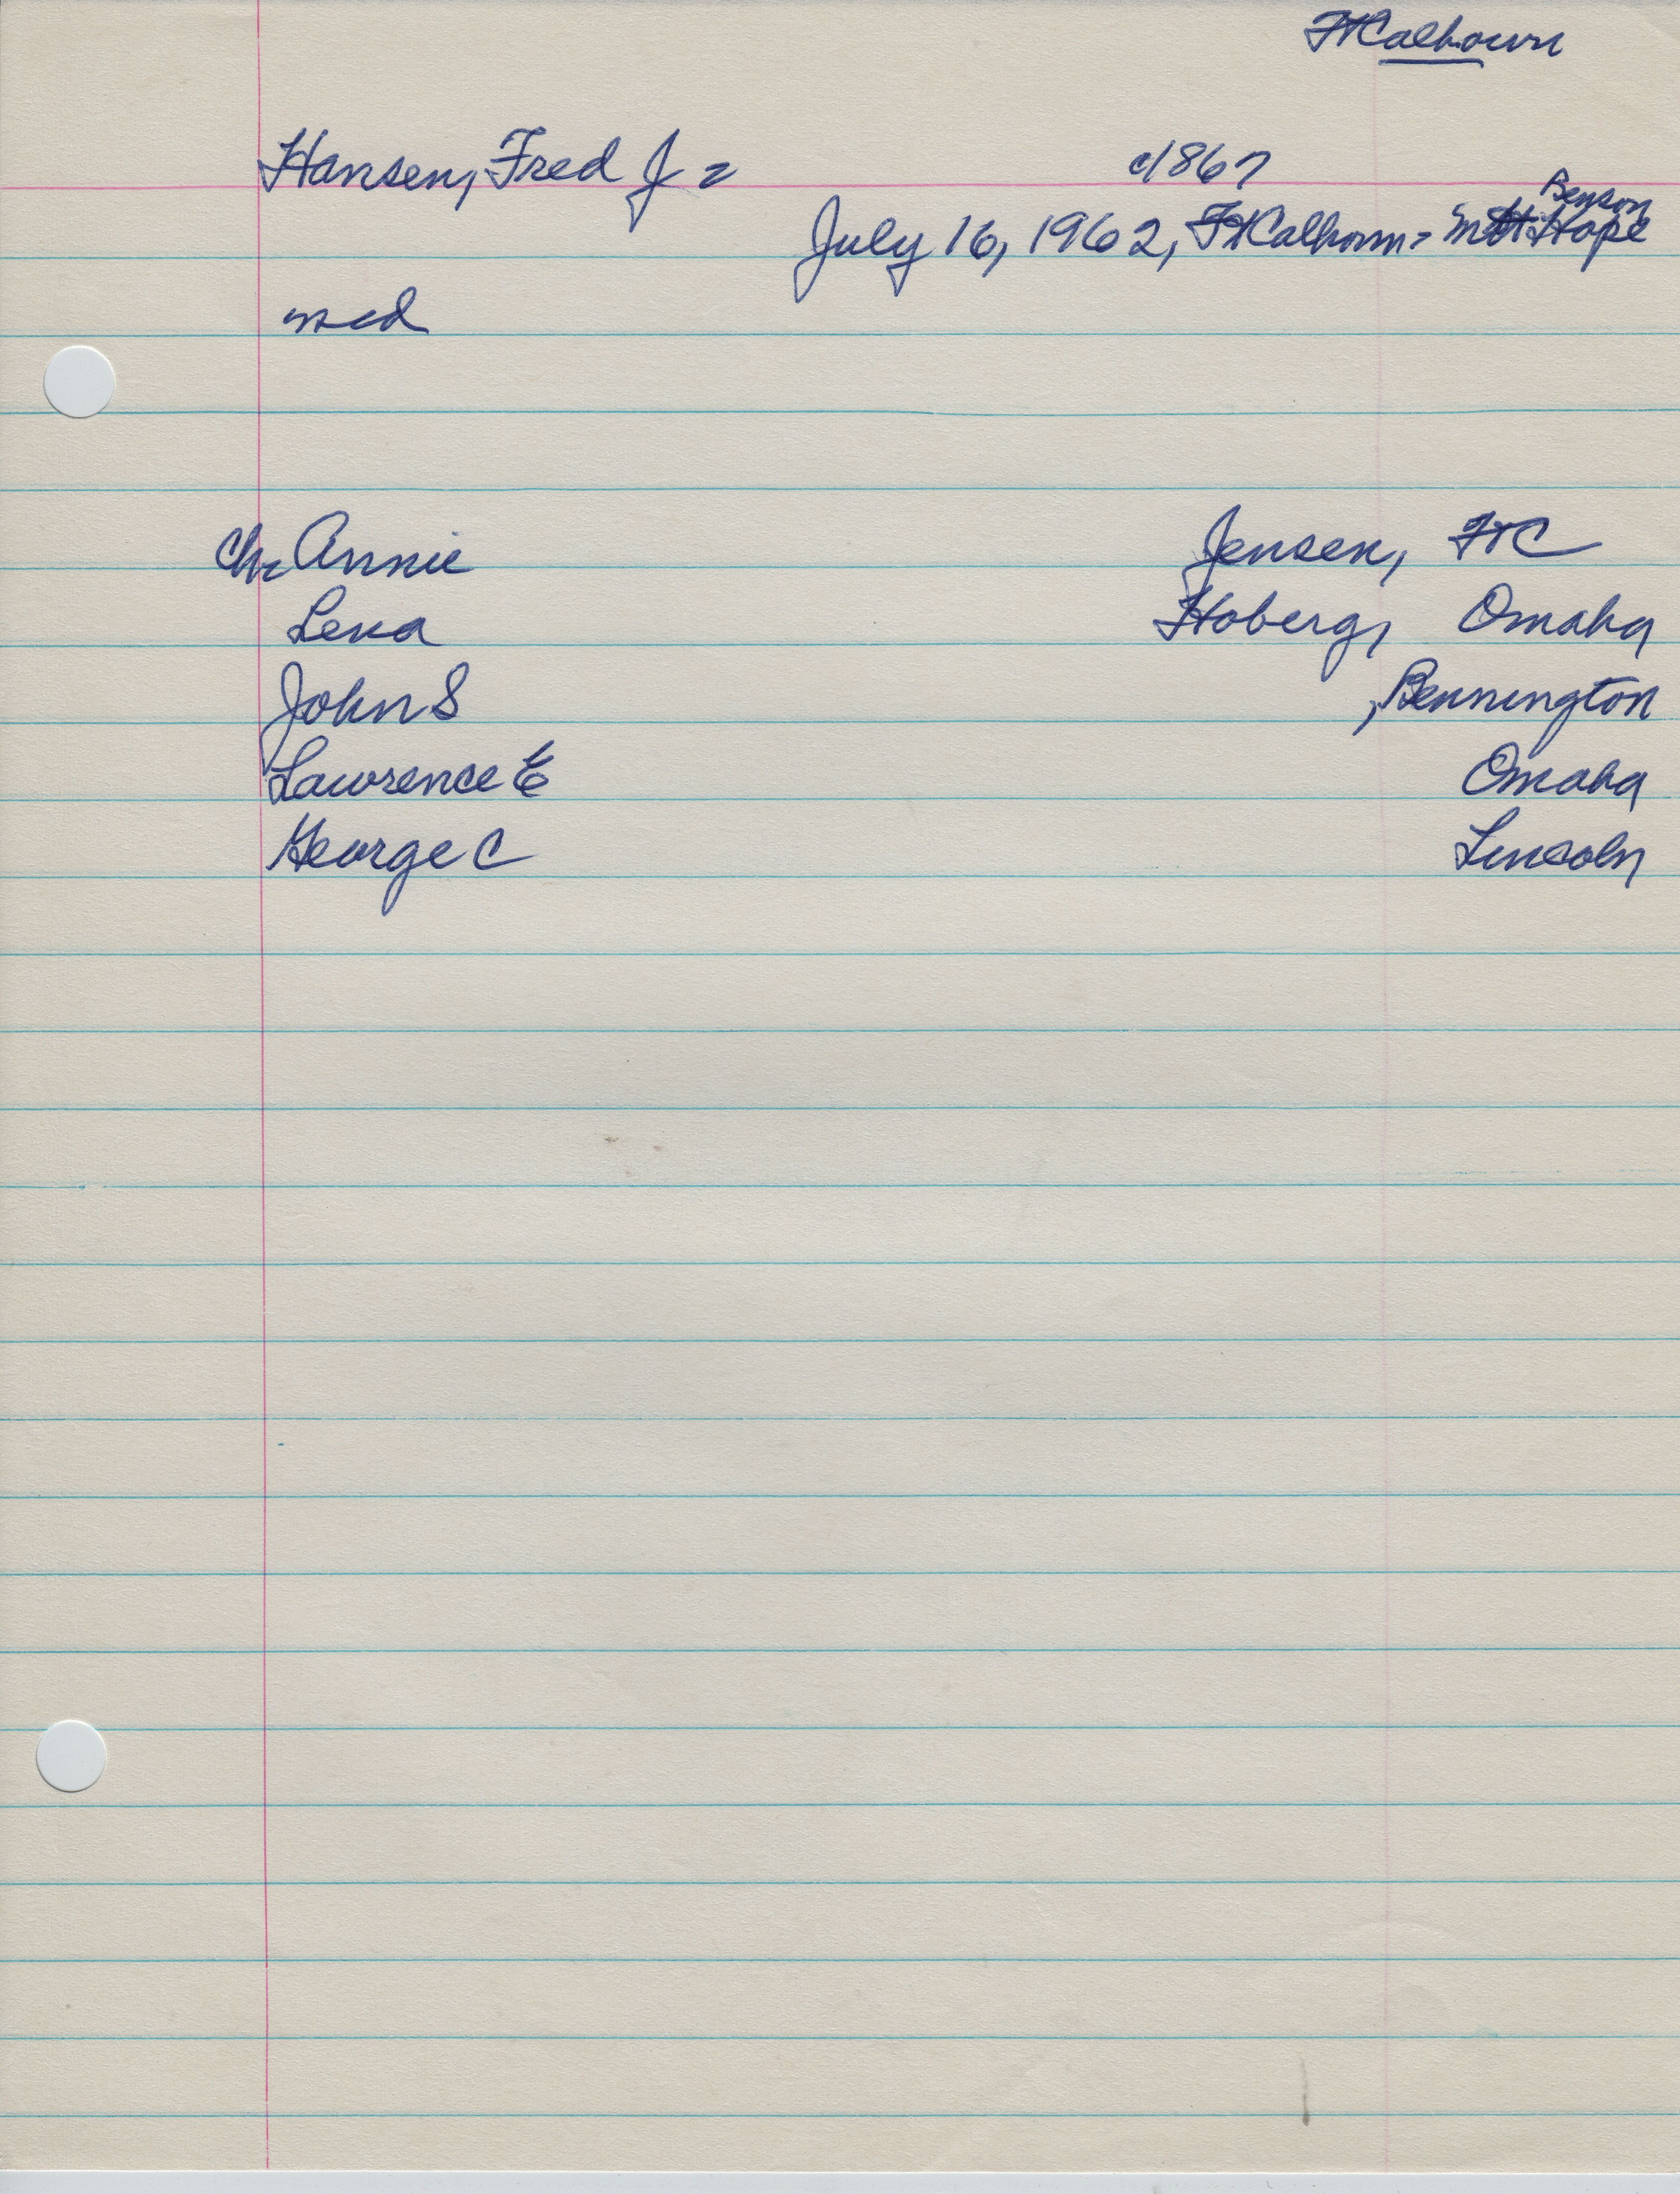 Ft Calhoun
Hansen, Fred J = c1867
Benson
July 16, 1962, Ft Calhoun = Mt Hope
md
Ch. Annie Jensen, Ft C
Lena Hoberg, Omaha
John S , Bennington
Lawrence E Omaha
George C Lincoln